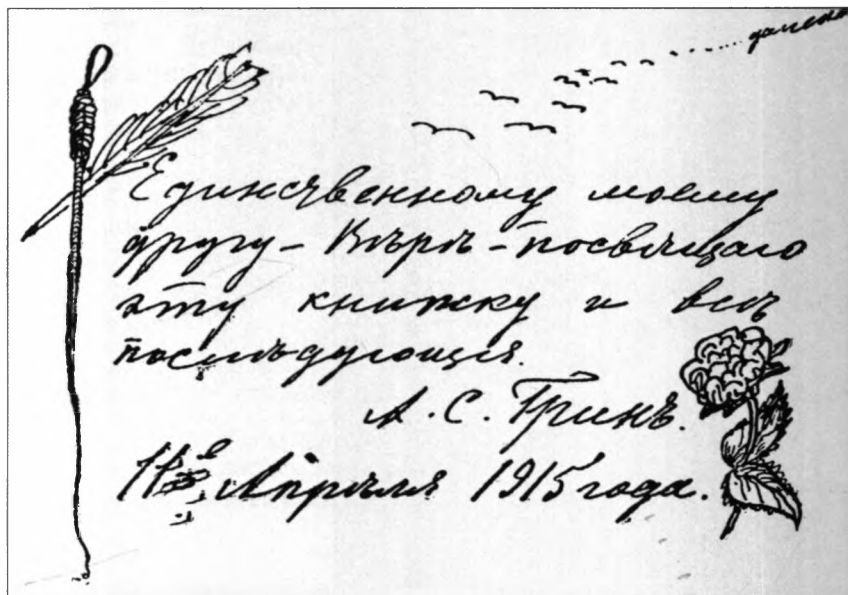 далеко
Единственному моему
другу – Вѣрѣ – посвящаю
эту книжку и всѣ
послѣдующія.
А. С. Гринъ.
11е Апрѣля 1915 года.